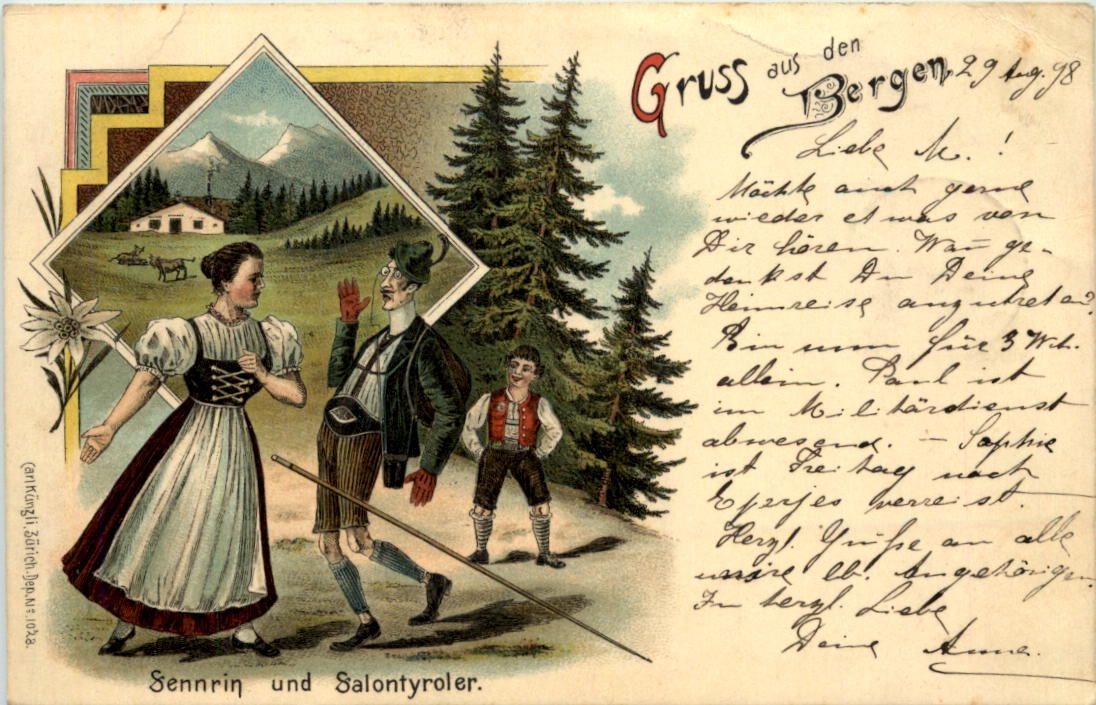 Gruss aus den
Bergen, 29 Aug. 98
Liebe M.!
Möchte auch gerne
wieder etwas von
Dir hören. Wan̄ ge-
denkst Du Deine
Heimreise anzutreten?
Bin nun für 3 Wch.
allein. Paul ist
im Militärdienst
abwesend. – Sophie
ist Freitag nach
Eperjes verreist.
Herzl. Grüße an alle
unsre lb. Angehörigen.
In herzl. Liebe
Deine Anna.
Sennrin und Salontyroler.
Carl Künzli, Zürich. Dep. No. 1028.